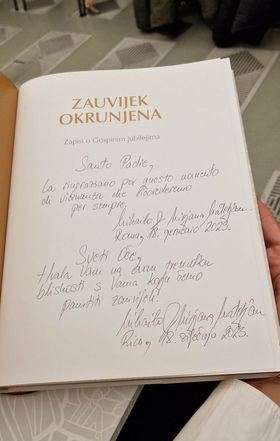 ZAUVIJEK
OKRUNJENA
Zapisi o Gospinim jubilejima
Santo Padre,
La ringraziamo per questo momento
di vicinanza che ricorderemo
per sempre,
Mihaela i Mirjana
Roma, 18. gennaio 2023.
Sveti Oče,
Hvala Vam na ovom trenutku
bliskosti s Vama koju ćemo
pamtiti zauvijek!
Mihaela Mirjana
Rim, 18. siječnja 2023.